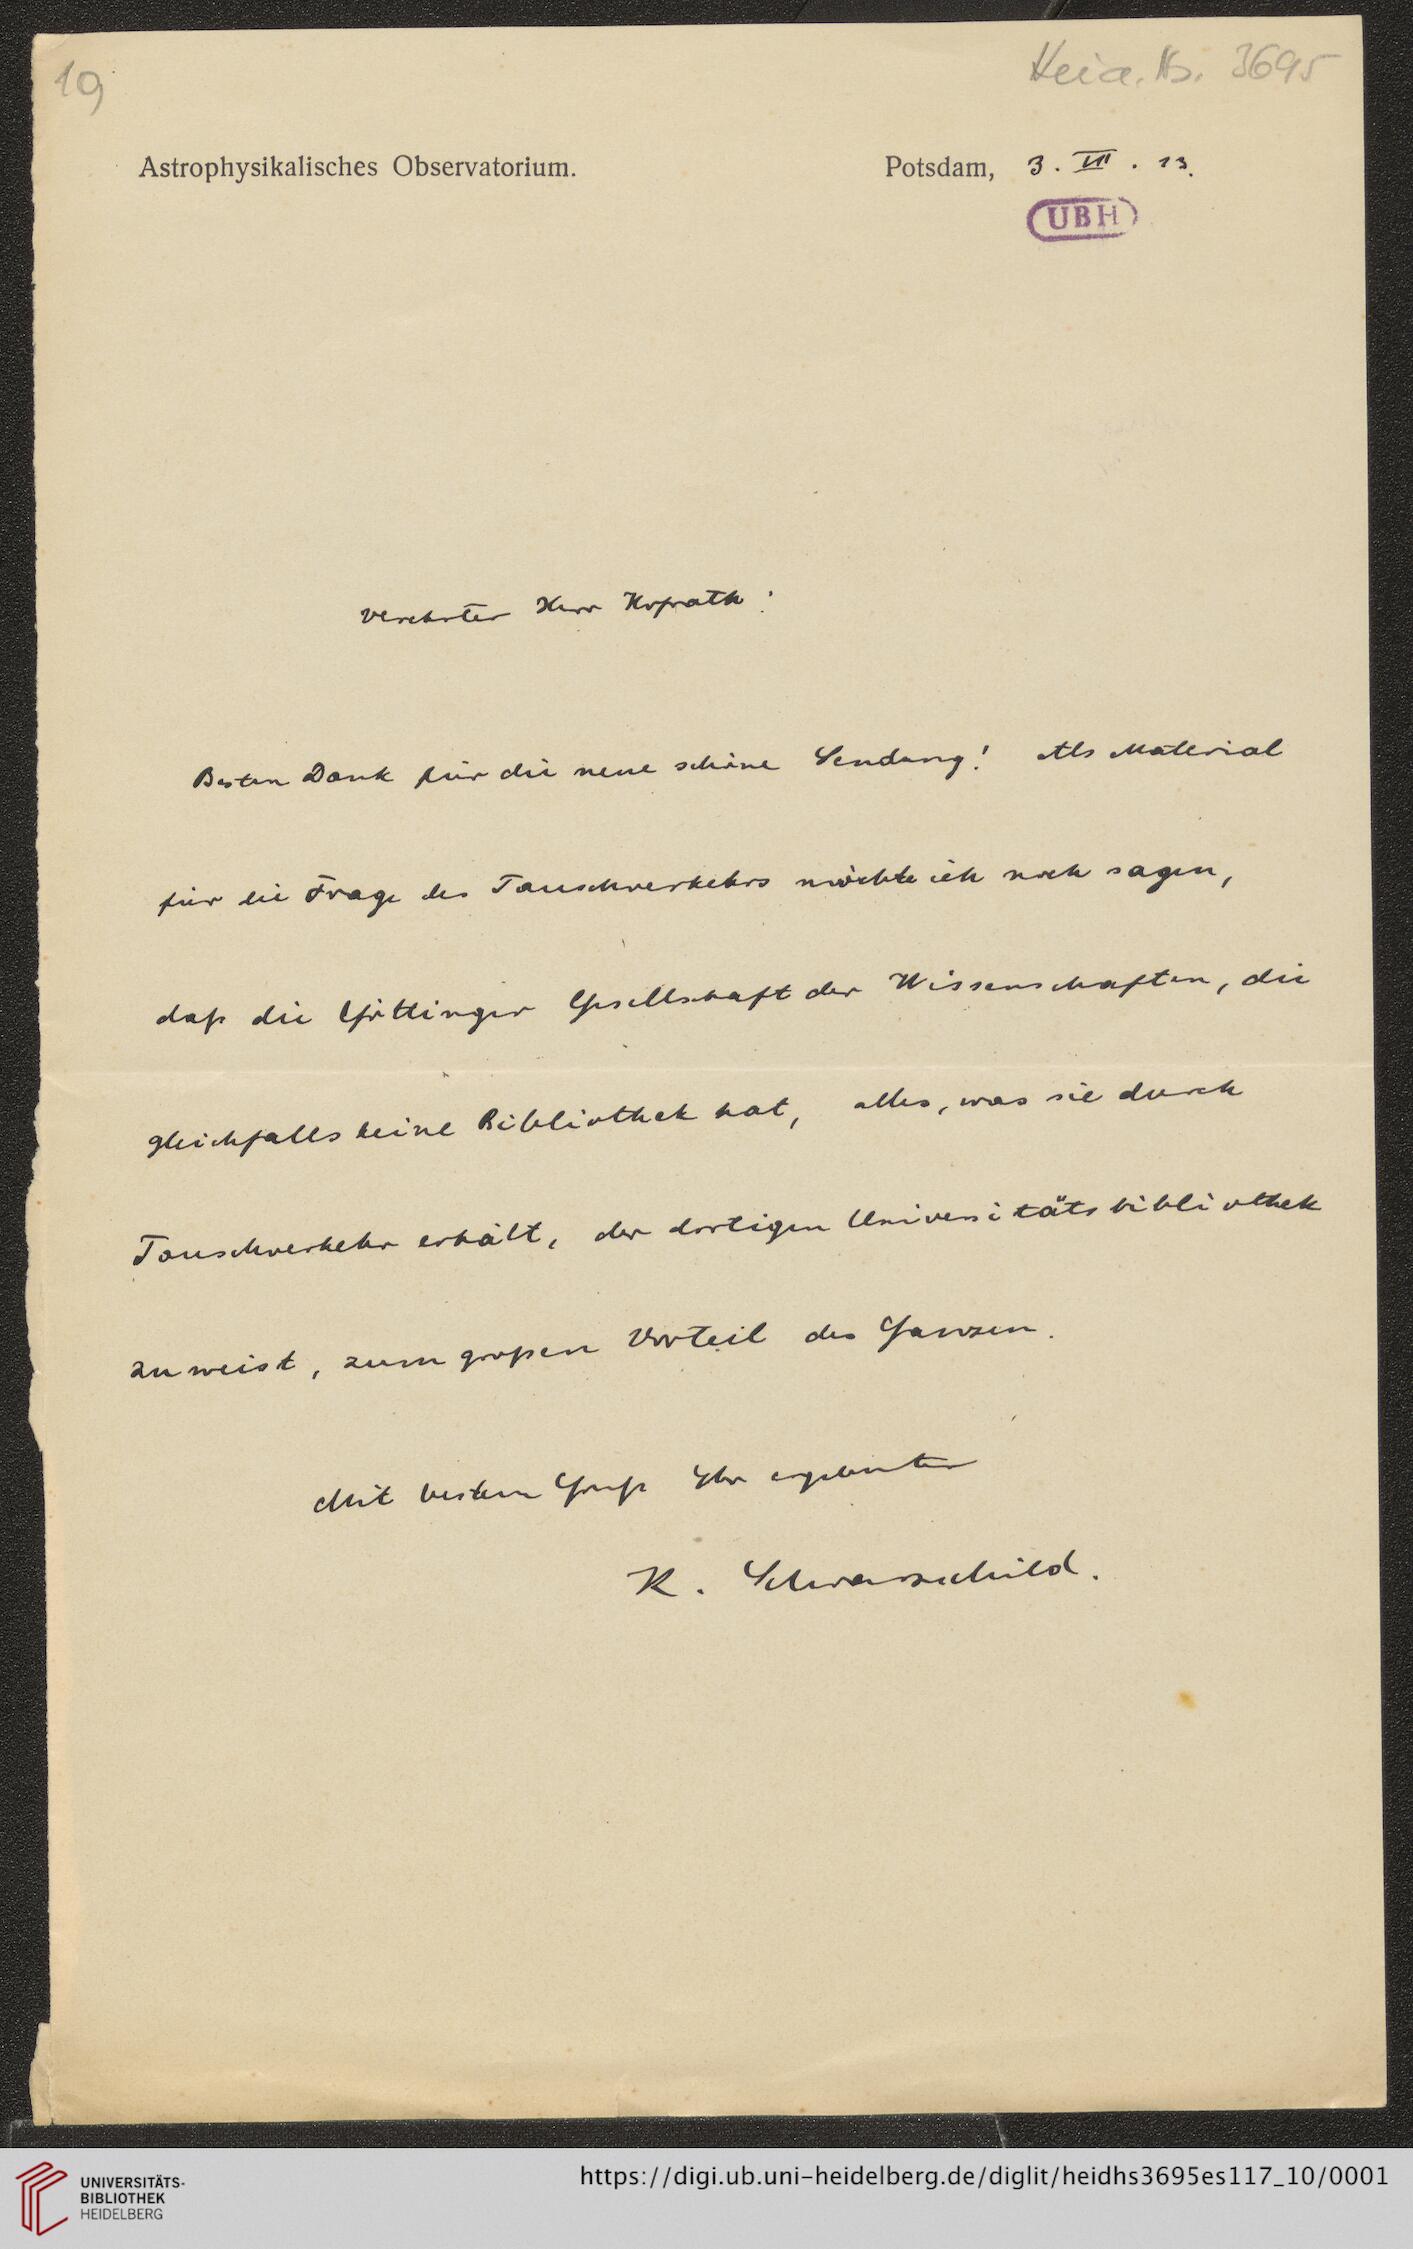 19
Heid. Hs. 3695
Astrophysikalisches Observatorium. Potsdam, 3. VII. 13.
UBH
Verehrter Herr Hofrath!
Besten Dank für die neue schöne Sendung! Als Material
für die Frage des Tauschverkehrs möchte ich noch sagen,
daß die Göttinger Gesellschaft der Wissenschaften, die
gleichfalls keine Bibliothek hat, alles, was sie durch
Tauschverkehr erhält, der dortigen Universitätsbibliothek
zuweist, zum großen Vorteil des Ganzen.
Mit bestem Gruß Ihr ergebenster
K. Schwarzschild.
UNIVERSITÄTS-
BIBLIOTHEK
HEIDELBERG
https://digi.ub.uni-heidelberg.de/diglit/heidhs3695es117_10/0001